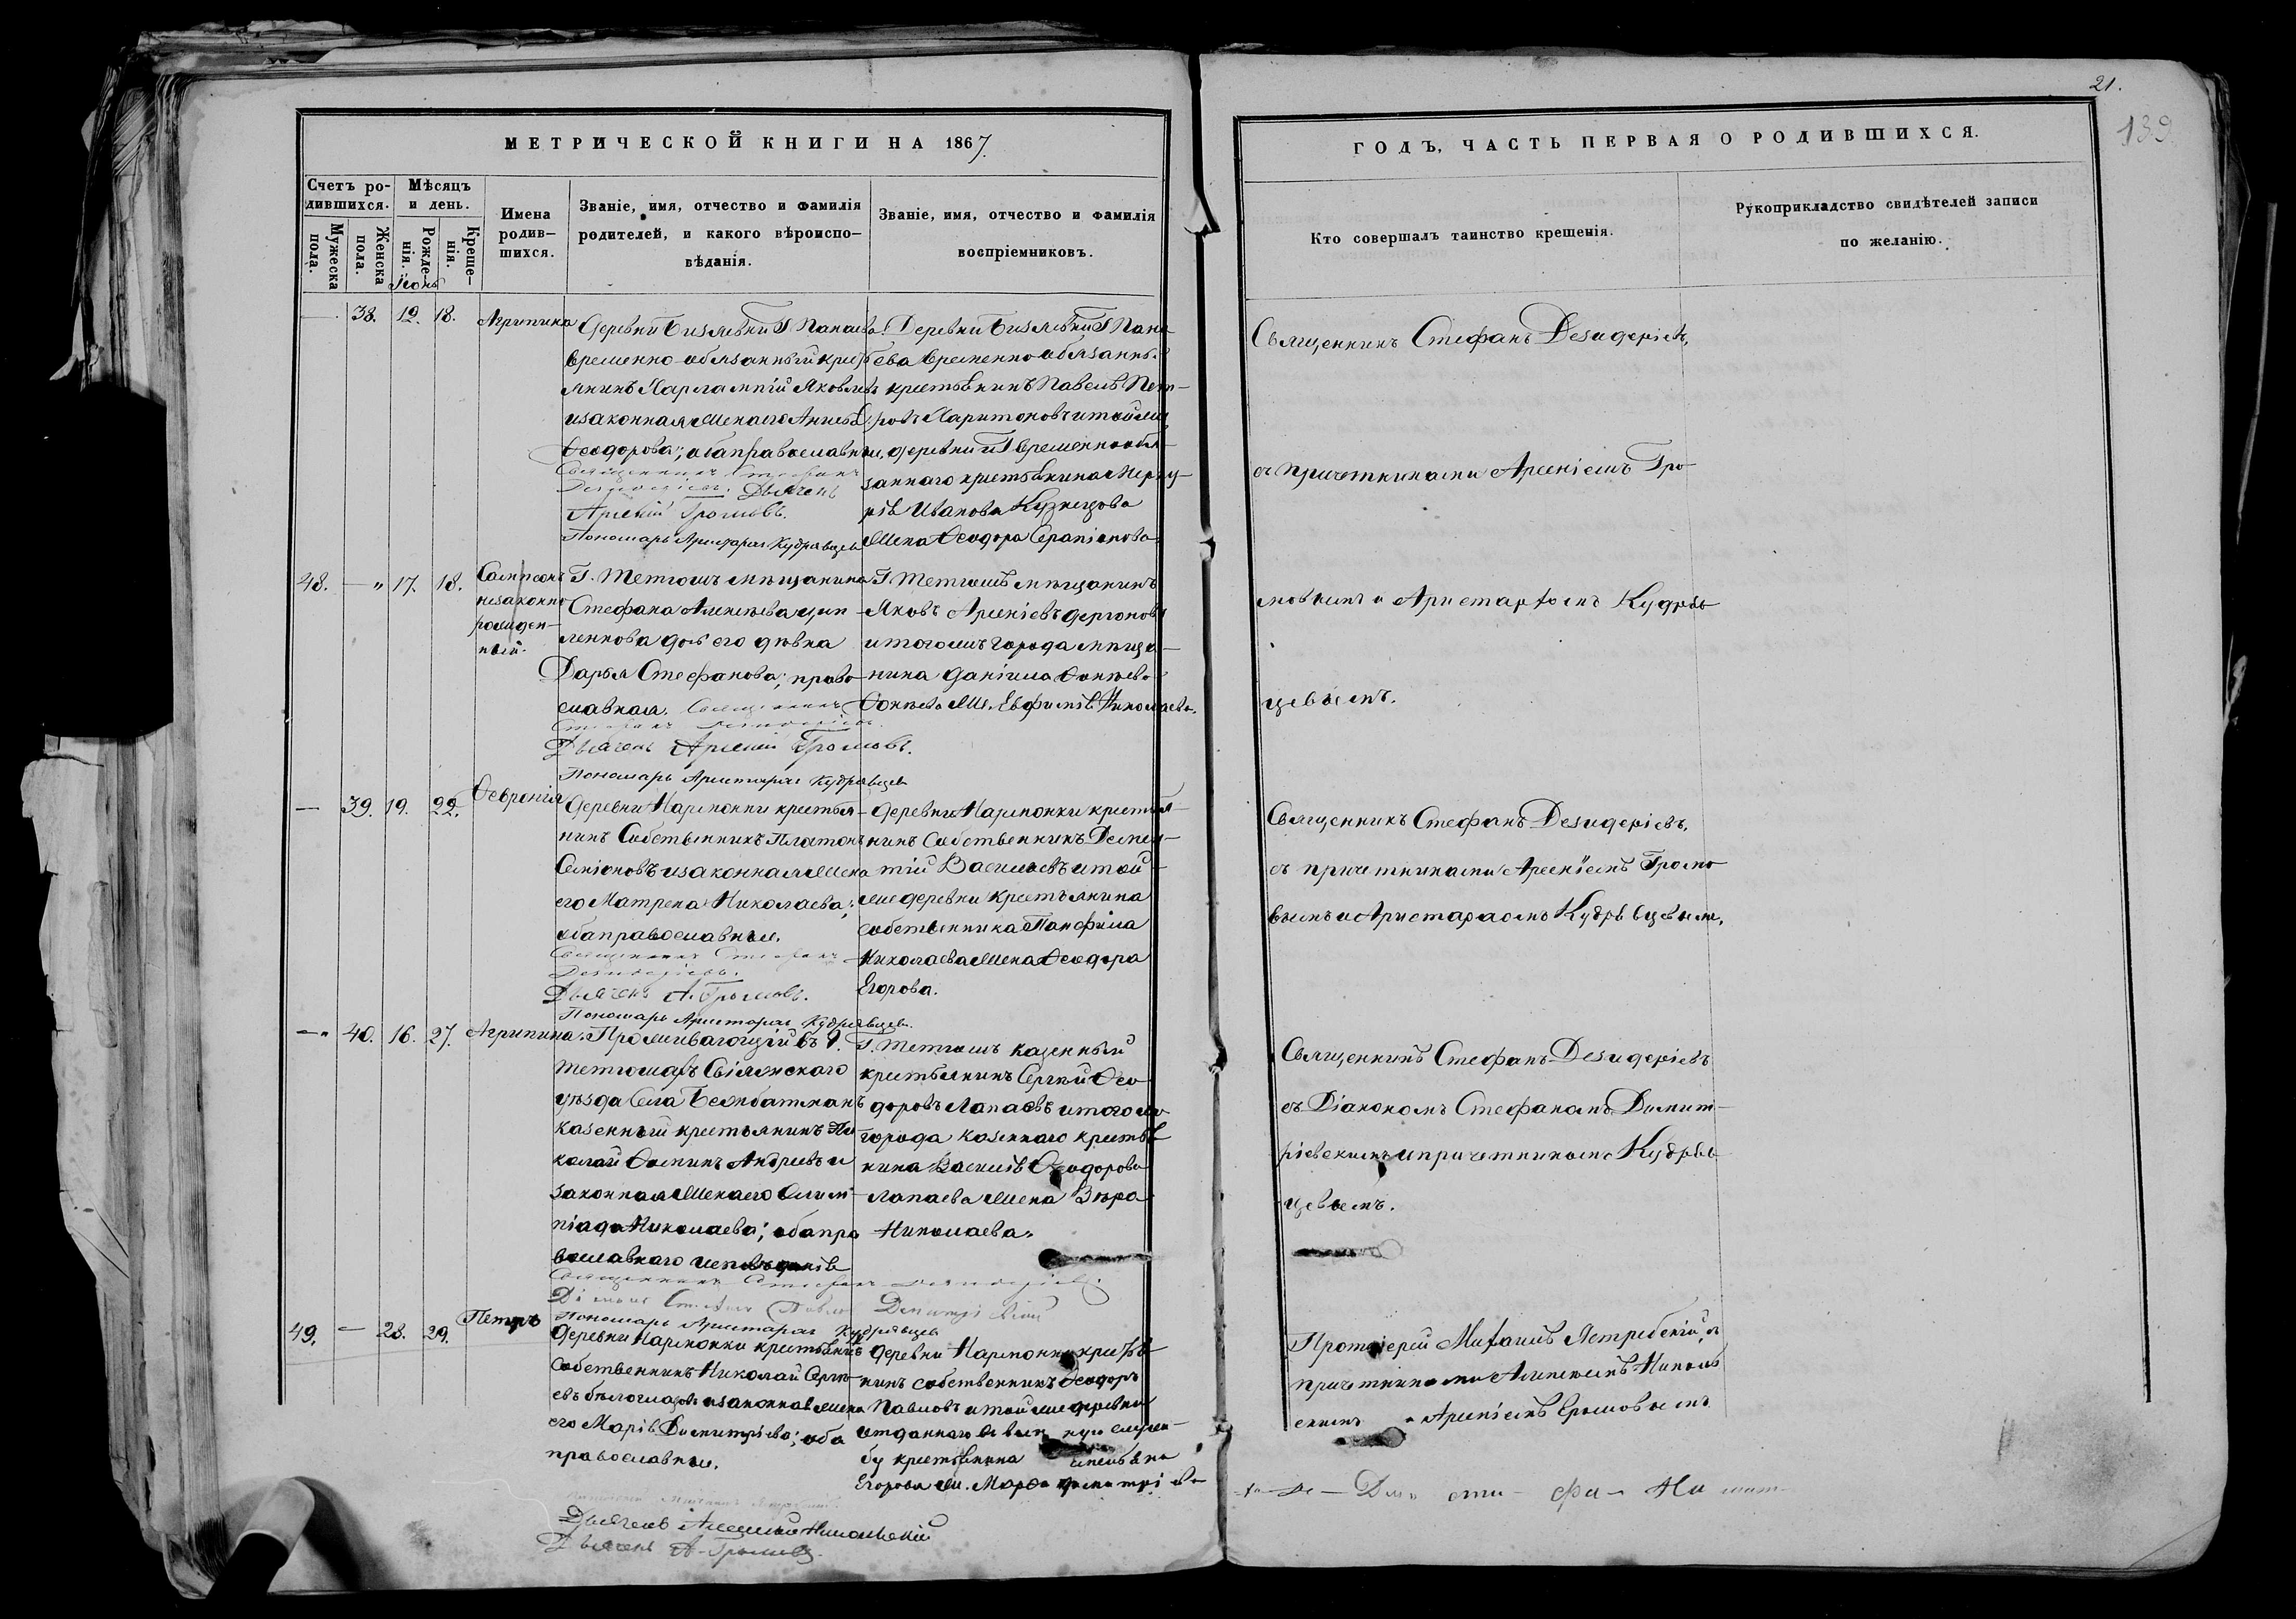 21.
139
МЕТРИЧЕСКОЙ КНИГИ НА 1867.
ГОДЪ, ЧАСТЬ ПЕРВАЯ О РОДИВШИХСЯ.
Счетъ ро-
дившихся.
Мужеска
пола.
Женска
пола.
Мѣсяцъ
и день.
Рожде-
нія.
Креще-
нія.
Имена
родив-
шихся.
Званіе, имя, отчество и фамилія
родителей, и какого вѣроиспо-
вѣданія.
Званіе, имя, отчество и фамилія
воспріемниковъ.
Кто совершалъ таинство крещенія.
Рукоприкладство свидѣтелей записи
по желанію.
38. 12. 18. Агрипина
Деревни Г
временно-обязанный
Харлампій Яковлевъ
и законная жена его
Ѳеодорова; оба православныи,
Священникъ Стефанъ
Дезидеріевъ. Дьячекъ
Арсеній Громовъ.
Пономарь Аристархъ Кудрявцевъ
Деревни Г
временно обязанны
крестьянинъ Павелъ Пет-
ровъ Харитоновъ и той же
деревни и Г временно обя-
заннаго крестьянина
Иванова Кузнецова
жена Ѳеодора Серапіонова
Священникъ Стефанъ Дезидеріевъ,
съ причетниками Арсеніемъ Гро-
мовымъ и Аристархомъ Кудряв
цевымъ.
48. — 17. 18.
Сампсонъ
незаконно
рожден-
ный.
Г. Тетюшъ мѣщанина
Стефана
дочь его дѣвка
Дарья Стефанова; право-
славная. Священникъ
Стефанъ Дезидеріевъ.
Дьячекъ Арсеній Громовъ.
Пономарь Аристархъ Кудрявцев
Г. Тетюшъ мѣщанинъ
Яковъ Арсеніевъ
и того жъ города мѣща-
нина Даніила
ж. Евфимія Николаева.
— 39. 19. 22. Ѳевронія
Деревни Нармонки крестья-
нинъ Собственникъ Платонъ
Семіоновъ и законная жена
его Матрена Николаева;
оба православныи.
Священникъ Стефанъ
Дезидеріевъ.
Дьячекъ А. Громовъ.
Пономарь Аристархъ Кудрявцев.
Деревни Нармонки крестья-
нинъ Собственникъ
Васильевъ и той
же деревни крестьянина
собственника Панфила
Николаева жена Ѳеодора
Егорова.
Священникъ Стефанъ Дезидеріевъ,
съ причетниками Арсеніемъ Громо
вымъ и Аристархомъ Кудрявцевымъ.
— 40. 16. 27. Агрипина.
Проживающій въ Г.
Тетюшахъ Свіяжскаго
уѣзда Села
казенный крестьянинъ Ни-
колай Ѳоминъ Андреевъ и
законная жена его Олим-
піада Николаева; оба пра
вославнаго исповѣданія
Священникъ Стефанъ Дезидеріевъ.
Пономарь Аристархъ Кудрявцевъ
Г. Тетюшъ казенный
крестьянинъ Сергѣй Ѳео
доровъ Лапаевъ и того же
города казеннаго крестья
нина Василія Ѳеодорова
Лапаева жена Вѣра
Николаева.
Священникъ Стефанъ Дезидеріевъ
съ Діакономъ Стефаномъ Димит-
ріевскимъ и причетникомъ Кудряв
цевымъ.
49. — 28. 29. Петръ
Деревни Нармонки крестьянинъ
собственникъ Николай Сергѣ
евъ и законная жена
его Марія Димитріева; оба
православныи.
Дьячекъ Алексѣй Никольскій
Дьячекъ А. Громовъ.
Деревни Нармонки крестья
нинъ собственникъ Ѳеодоръ
Павловъ и той же деревни
отданнаго въ
бу крестьянина
Егорова ж. Марѳа Димитріева
Протоіерей Михаилъ Ястребскій, съ
причетниками Алексѣемъ Николь
скимъ и Арсеніемъ